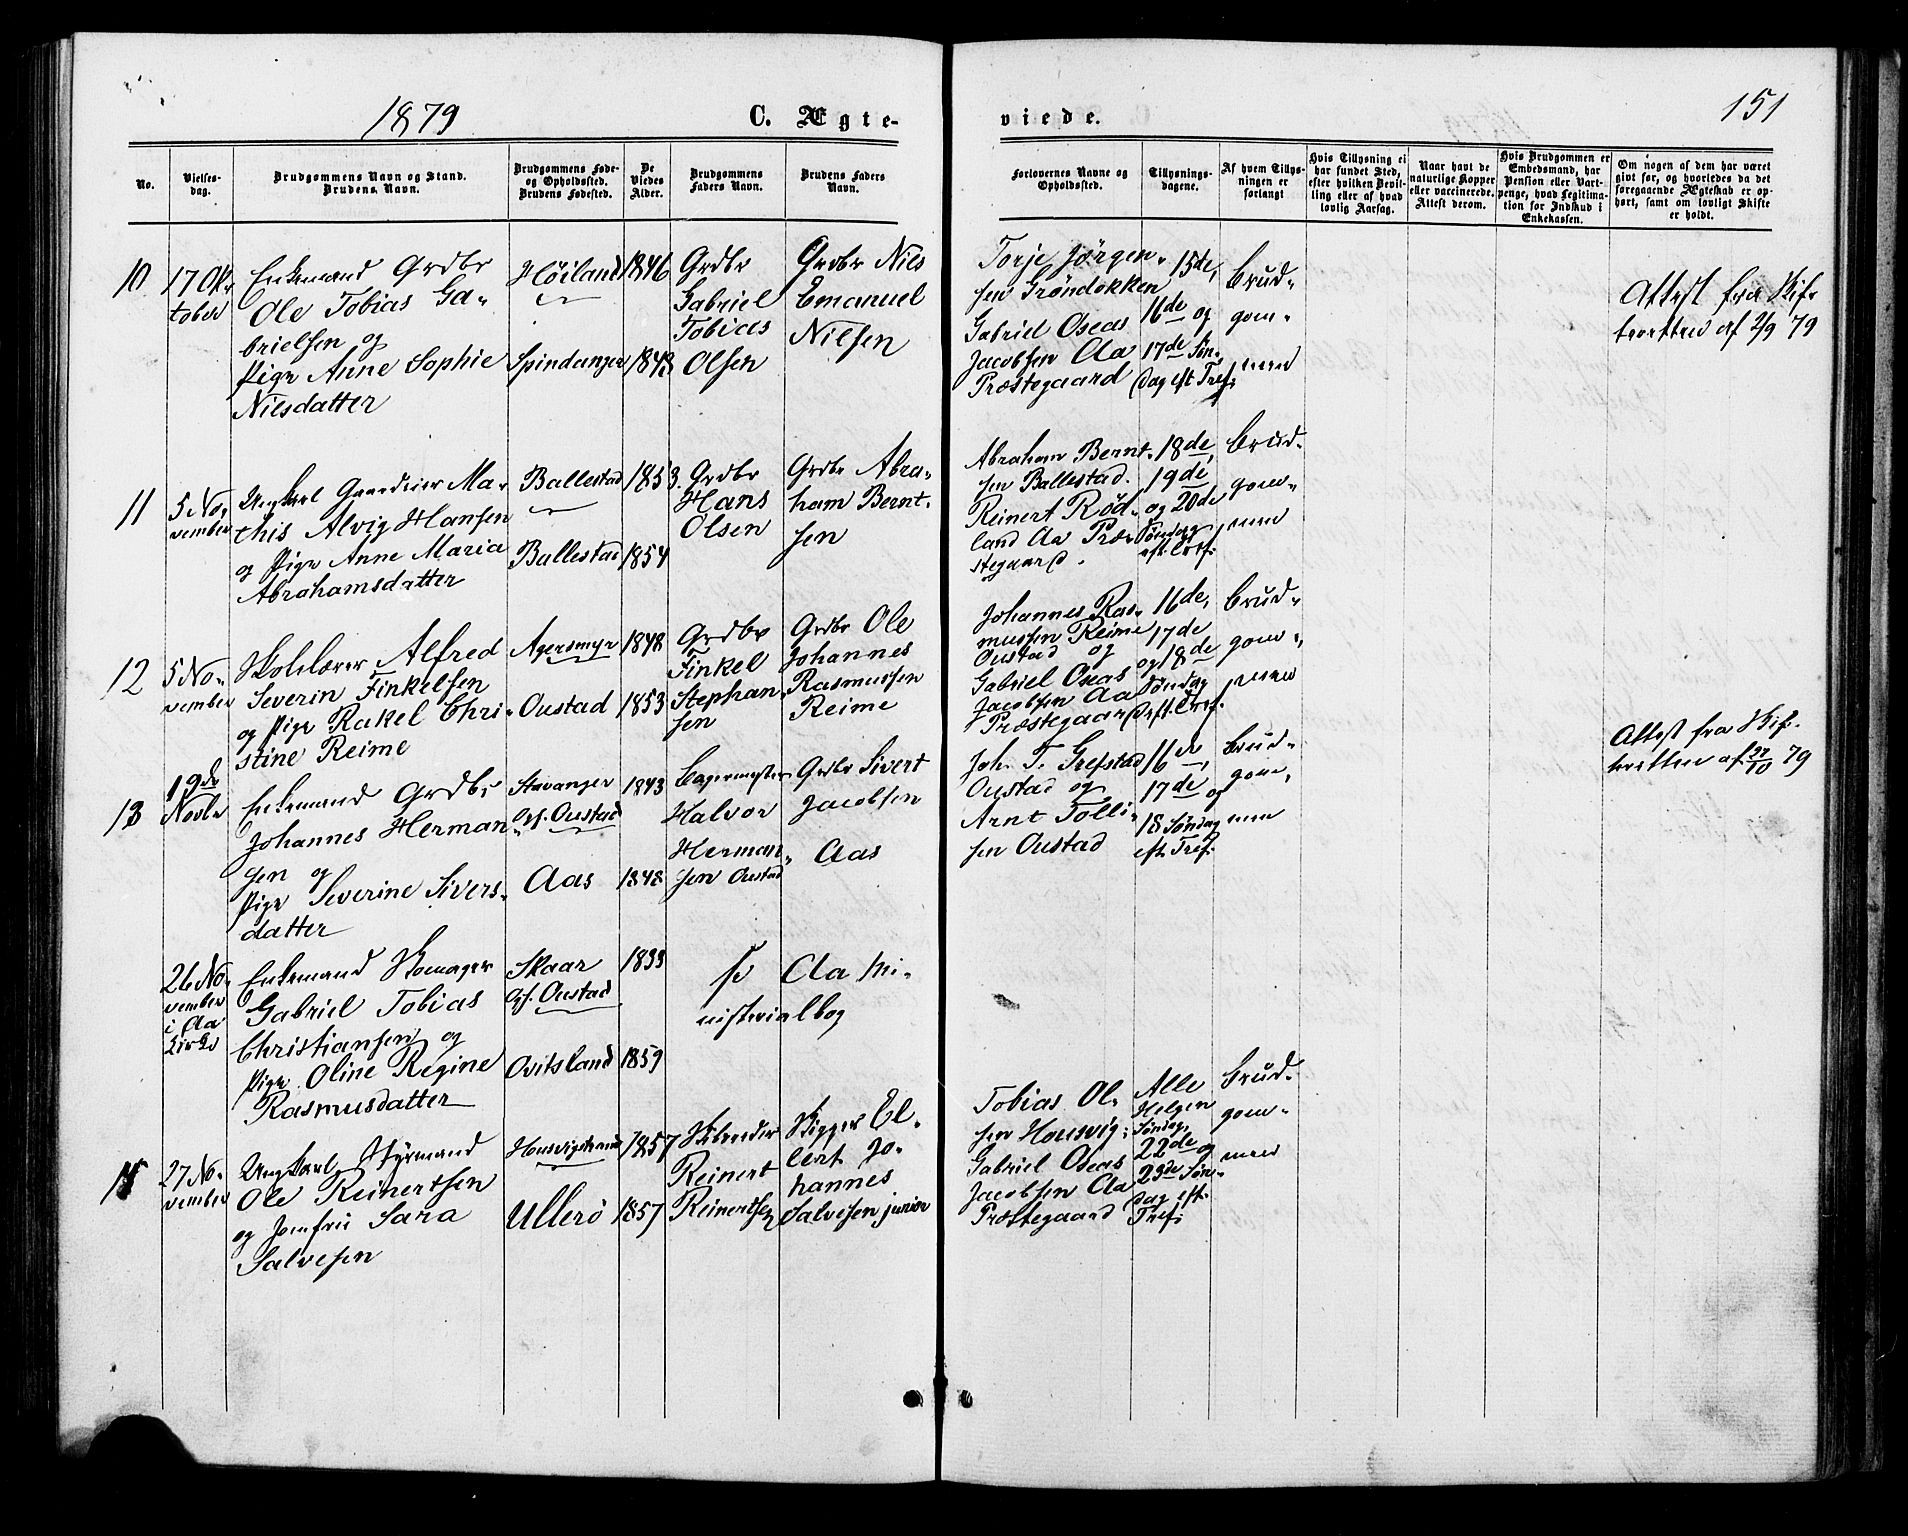 1879
C. Ægte-
viede.
151
No.
Vielses-
dag.
Brudgommens Navn og Stand.
Brudens Navn.
Brudgommens Føde-
og Opholdssted.
Brudens Fødested.
De
Viedes
Alder.
Brudgommens
Faders Navn.
Brudens Faders
Navn.
Forlovernes Navne og
Opholdssted.
Tillysnings-
dagene.
Af hvem Tillys-
ningen er
forlangt
Hvis Tillysning ei
har fundet Sted,
efter hvilken Bevil-
ling eller af hvad
lovlig Aarsag.
Naar havt de
naturlige Kopper
eller vaccinerede.
Attest derom.
Hvis Brudgommen er
Embedsmand, har
Pension eller Vart-
penge, hvad Legitima-
tion for Indskud i
Enkekassen.
Om nogen af dem har været
givt før, og hvorledes da det
foregaaende Ægteskab er op-
hørt, samt om lovligt Skifte
er holdt.
10
17 Ok-
tober
Enkemand Grdbr
Ole Tobias Ga-
brielsen og
Pige Anne Sophie
Nilsdatter
Høiland
Spindanger
1846
1843
Grdbr
Gabriel
Tobias
Olsen
Grdbr Nils
Emanuel
Nilsen
Torje Jørgen-
sen Grøndokken
Gabriel Oseas
Jacobsen Aa
Præstegaard
15de,
16de og
17de Søn-
dag eft Tref:
Brud-
gom-
men
Attest fra Skif-
teretten af 2/9 79
11
5 No-
vember
Ungkarl Gaardeier Ma-
this Alvig Hansen
og Pige Anne Maria
Abrahamsdatter
Ballestad
Ballestad
1853.
1854
Grdbr
Hans
Olsen
Grdbr Abra-
ham Bernt-
sen
Abraham Bernt-
sen Ballestad.
Reinert Rød-
land Aa Præ-
stegaard.
18de,
19de
og 20de
Søndag
eft. Tref.
Brud-
gom-
men
12
5 No-
vember
Skolelærer Alfred
Severin Finkelsen
og Pige Rakel Chri-
stine Reime
Agersmyr
Oustad
1848
1853
Grdbr
Finkel
Stephan-
sen
Grdbr Ole
Johannes
Rasmussen
Reime
Johannes Ras-
mussen Reime
Oustad og
Gabriel Oseas
Jacobsen Aa
Præstegaard
16de,
17de
og 18de
Søndag
eft. Tref.
Brud-
gom-
men
13
19de
Novbr
Enkemand Grdbr
Johannes Herman-
sen og
Pige Severine Sivers-
datter
Stavanger
Opf. Oustad
Aas
1843
1848
Halvor
Herman-
sen Oustad
Grdbr Sivert
Jacobsen
Aas
Joh. T. Grefstad
Oustad og
Arnt Tolli-
sen Oustad
16de,
17de og
18 Søndag
eft. Tref.
Brud-
gom-
men
Attest fra Skif-
teretten af 27/10 79
26 No-
vember
i Aa
Kirke
Enkemand Skomager
Gabriel Tobias
Christiansen og
Pige Oline Regine
Rasmusdatter
Skaar
Opf. Oustad
Ovitsland
1833
1859
se Aa Mi-
nisterialbog
27 No-
vember
Ungkarl, Styrmand
Ole Reinertsen
og Jomfru Sara
Salvesen
Housvigstrand
Ullerø
1857
1857
Reinert
Reinertsen
Skipper El-
lert Jo-
hannes
Salvesen junior
Tobias Ol-
sen Housvig;
Gabriel Oseas
Jacobsen Aa
Præstegaard
Alle
Helgen
Søndag,
22de og
23de Søn-
dag eft.
Tref:
Brud-
gom-
men